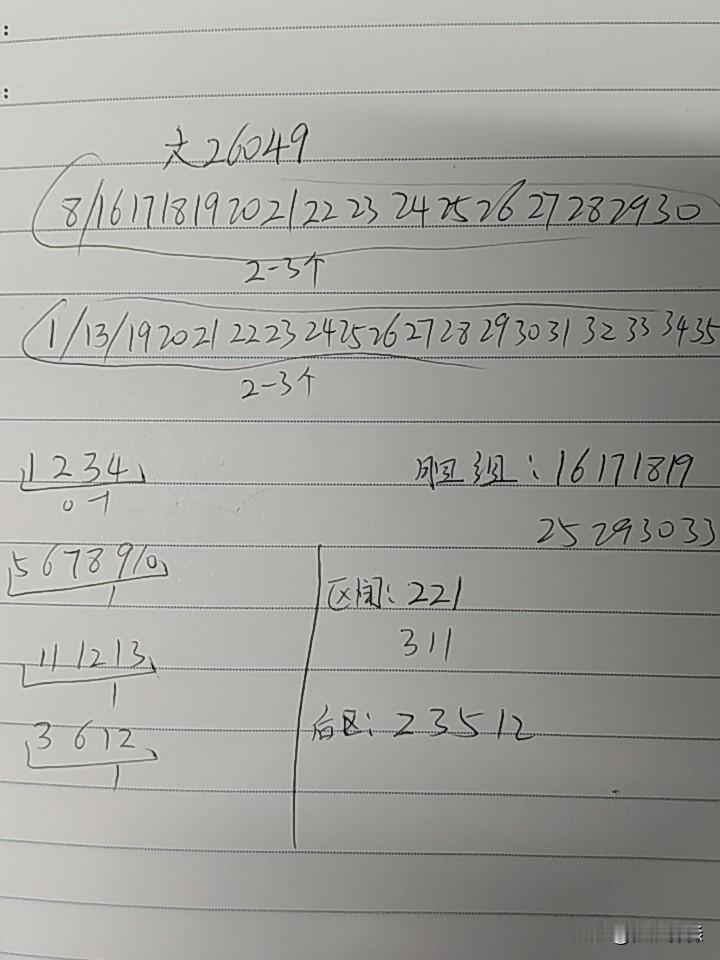 :
:
大26049
8/16 17 18 19 20 21 22 23 24 25 26 27 28 29 30
2-3个
1/13/19 20 21 22 23 24 25 26 27 28 29 30 31 32 33 34 35
2-3个
1 2 3 4
0-1
胆组:16 17 18 19
25 29 30 33
5 6 7 8 9 10
1
11 12 13
1
3 6 12
1
区间:221
311
后区:2 3 5 12